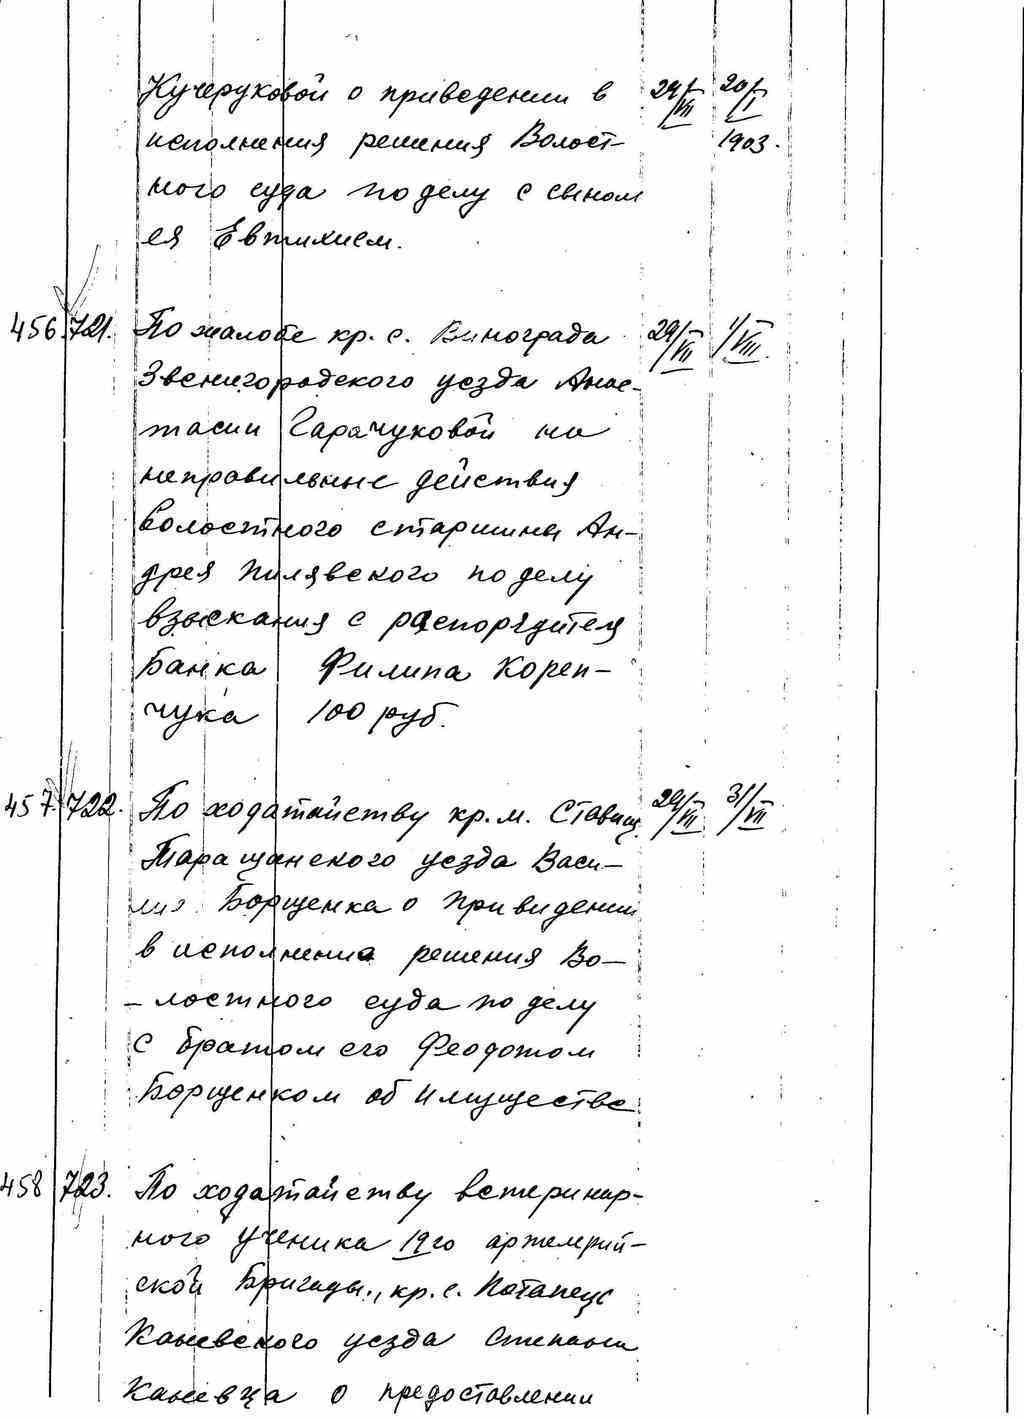 Кучеруковой о приведении в 29/VII 20/I
исполнения решения Волост- 1903.
ного суда по делу с сыном
ея Евтихием.
456. 721. По жалобе кр. с. Винограда 29/VII 1/VIII.
Звенигородского уезда Анас-
тасии Гарачуковой на
неправильные действия
волостного старшины Ан-
дрея Пилявского по делу
взыскания с распорядителя
Банка Филипа Кореп-
чука 100 руб.
457. 722. По ходатайству кр. м. Ставищ 29/VII 31/VII
Таращанского уезда Васи-
лия Борщенка о привидении
в исполнения решения Во-
-лостного суда по делу
с братом его Феодотом
Борщенком об имуществе
458 723. По ходатайству ветеринар-
ного ученика 19го артилерий-
ской Бригады, кр. с. Потапец
Каневского уезда Степана
Каневца о предоставлении